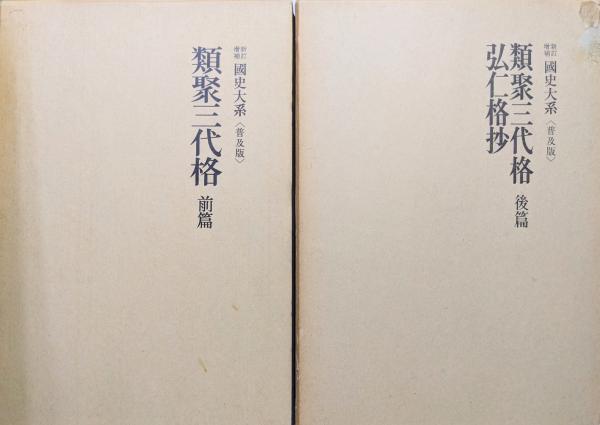 新訂
増補 國史大系〈普及版〉
類聚三代格 前篇
新訂
増補 國史大系〈普及版〉
類聚三代格 後篇
弘仁格抄